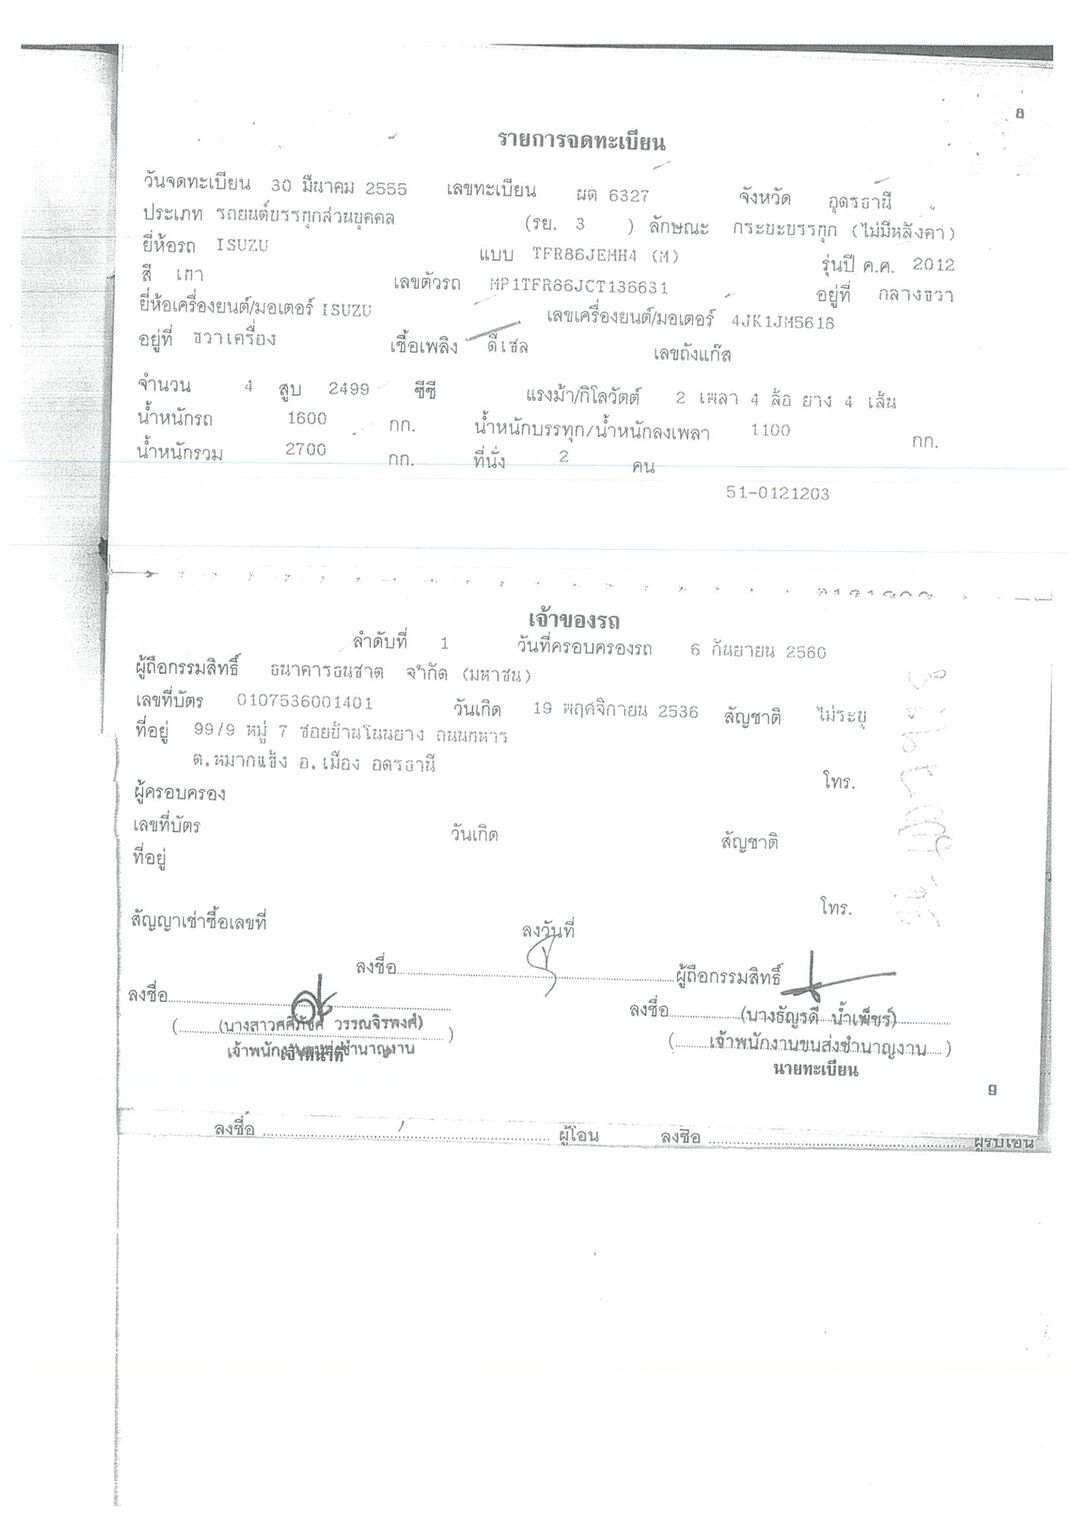 8
รายการจดทะเบียน
วันจดทะเบียน 30 มีนาคม 2555 เลขทะเบียน ผต 6327 จังหวัด อุดรธานี
ประเภท รถยนต์บรรทุกส่วนบุคคล (รย. 3 ) ลักษณะ กระบะบรรทุก (ไม่มีหลังคา)
ยี่ห้อรถ ISUZU แบบ TFR86JEMH4 (M) รุ่นปี ค.ศ. 2012
สี เทา เลขตัวรถ MP1TFR86JCT136631 อยู่ที่ กลางขวา
ยี่ห้อเครื่องยนต์/มอเตอร์ ISUZU เลขเครื่องยนต์/มอเตอร์ 4JK1JM5618
อยู่ที่ ขวาเครื่อง เชื้อเพลิง ดีเซล เลขถังแก๊ส
จำนวน 4 สูบ 2499 ซีซี แรงม้า/กิโลวัตต์ 2 เพลา 4 ล้อ ยาง 4 เส้น
น้ำหนักรถ 1600 กก. น้ำหนักบรรทุก/น้ำหนักลงเพลา 1100 กก.
น้ำหนักรวม 2700 กก. ที่นั่ง 2 คน
51-0121203
เจ้าของรถ
ลำดับที่ 1 วันที่ครอบครองรถ 6 กันยายน 2560
ผู้ถือกรรมสิทธิ์ ธนาคารธนชาต จำกัด (มหาชน)
เลขที่บัตร 0107536001401 วันเกิด 19 พฤศจิกายน 2536 สัญชาติ ไม่ระบุ
ที่อยู่ 99/9 หมู่ 7 ซอยบ้านโนนยาง ถนนทหาร
ต.หมากแข้ง อ.เมือง อุดรธานี โทร.
ผู้ครอบครอง
เลขที่บัตร วันเกิด สัญชาติ
ที่อยู่
โทร.
สัญญาเช่าซื้อเลขที่ ลงวันที่
ลงชื่อ ผู้ถือกรรมสิทธิ์
ลงชื่อ ลงชื่อ
วรรณจิรพงศ์) (นางธัญรดี น้ำเพ็ชร์)
เจ้าพนักงานขนส่งชำนาญงาน (เจ้าพนักงานขนส่งชำนาญงาน)
เจ้าหน้าที่ นายทะเบียน
9
ลงชื่อ ผู้โอน ลงชื่อ ผู้รับโอน